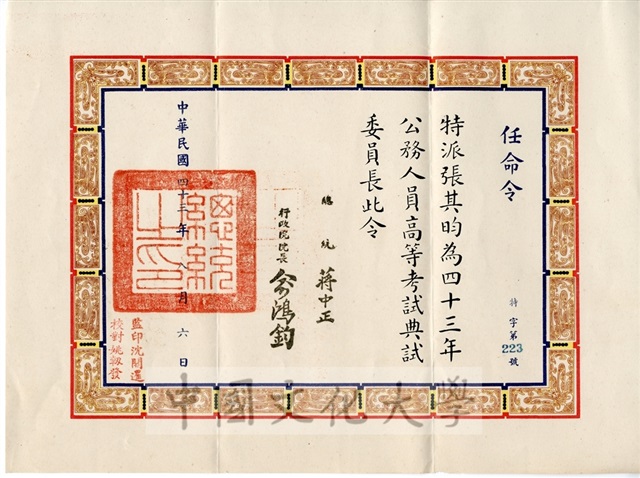 任命令
特派張其昀為四十三年
公務人員高等考試典試
委員長此令
總統 蔣中正
行政院院長 俞鴻鈞
中華民國四十三年八月六日
總統之印
監印沈開運
校對姚毅發
特字第223號
中國文化大學